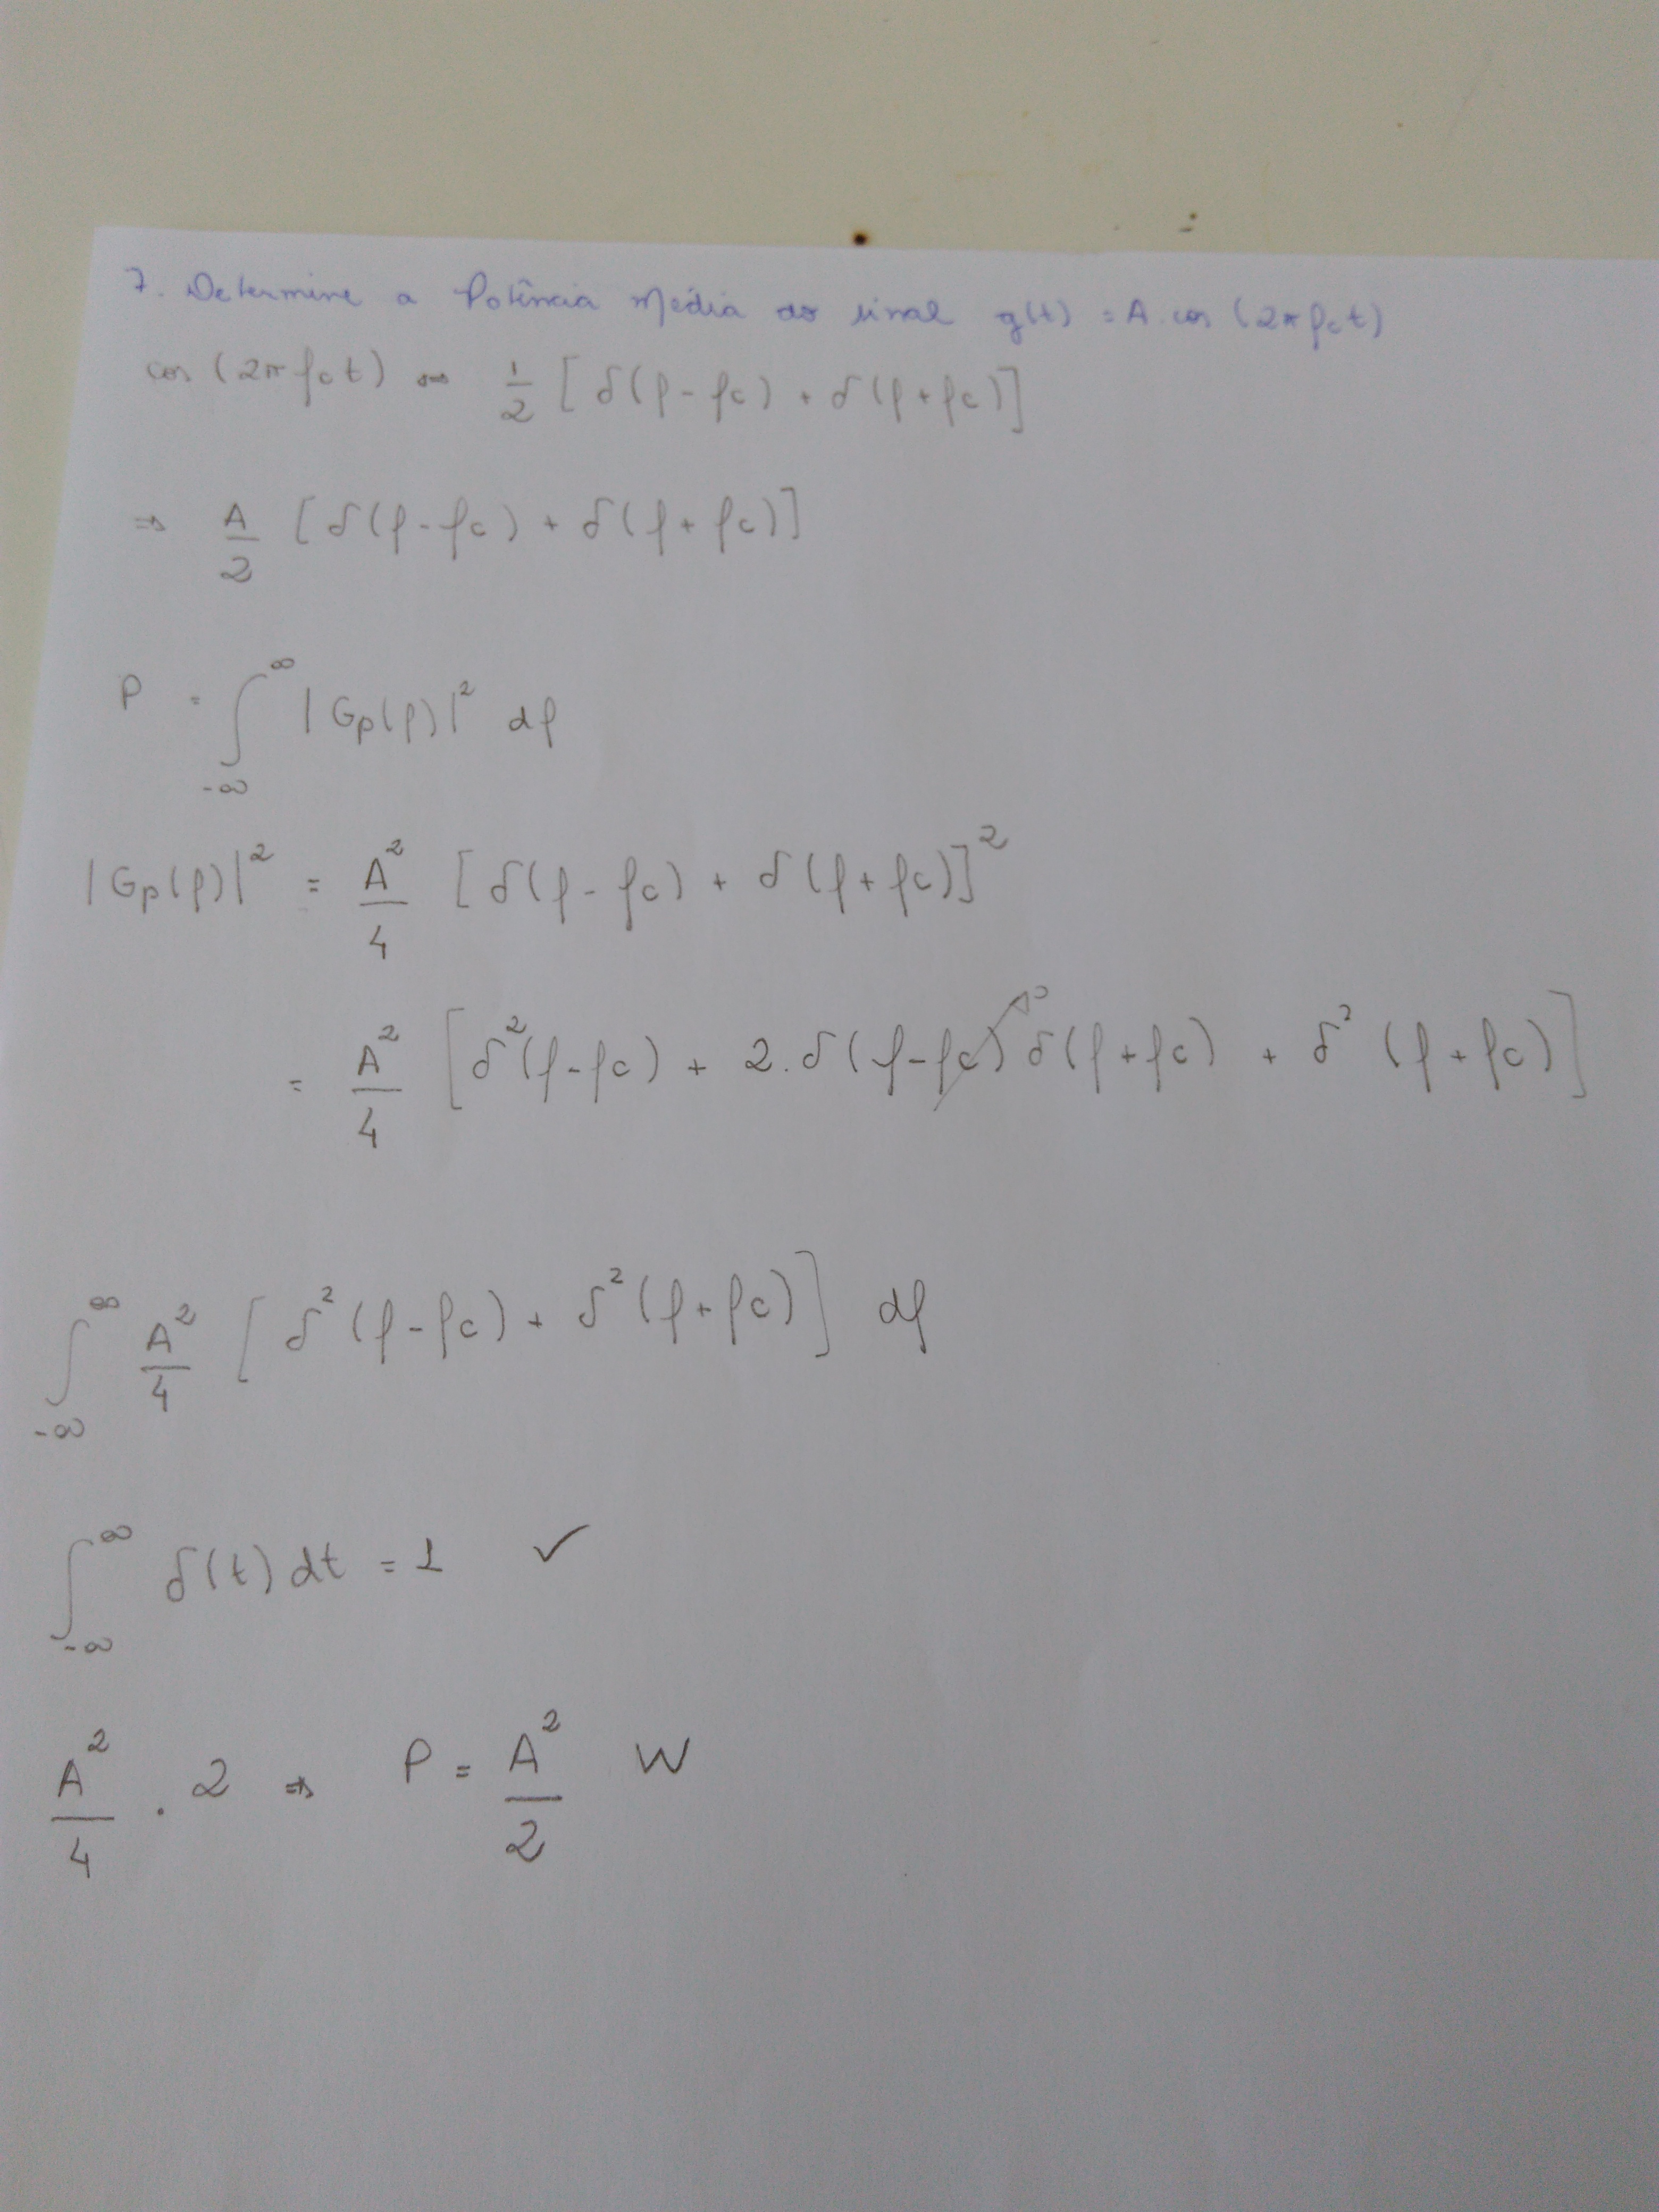 7. Determine a Potência Média do sinal g(t) = A.cos(2πfct)
cos(2πfct) ⇔ 1/2 [δ(f-fc) + δ(f+fc)]
⇒ A/2 [δ(f-fc) + δ(f+fc)]
P = ∫_{-∞}^{∞} |Gp(f)|² df
|Gp(f)|² = A²/4 [δ(f-fc) + δ(f+fc)]²
= A²/4 [δ²(f-fc) + 2.δ(f-fc) δ(f+fc) + δ²(f+fc)]
∫_{-∞}^{∞} A²/4 [δ²(f-fc) + δ²(f+fc)] df
∫_{-∞}^{∞} δ(t)dt = 1 ✓
A²/4 . 2 ⇒ P = A²/2 W